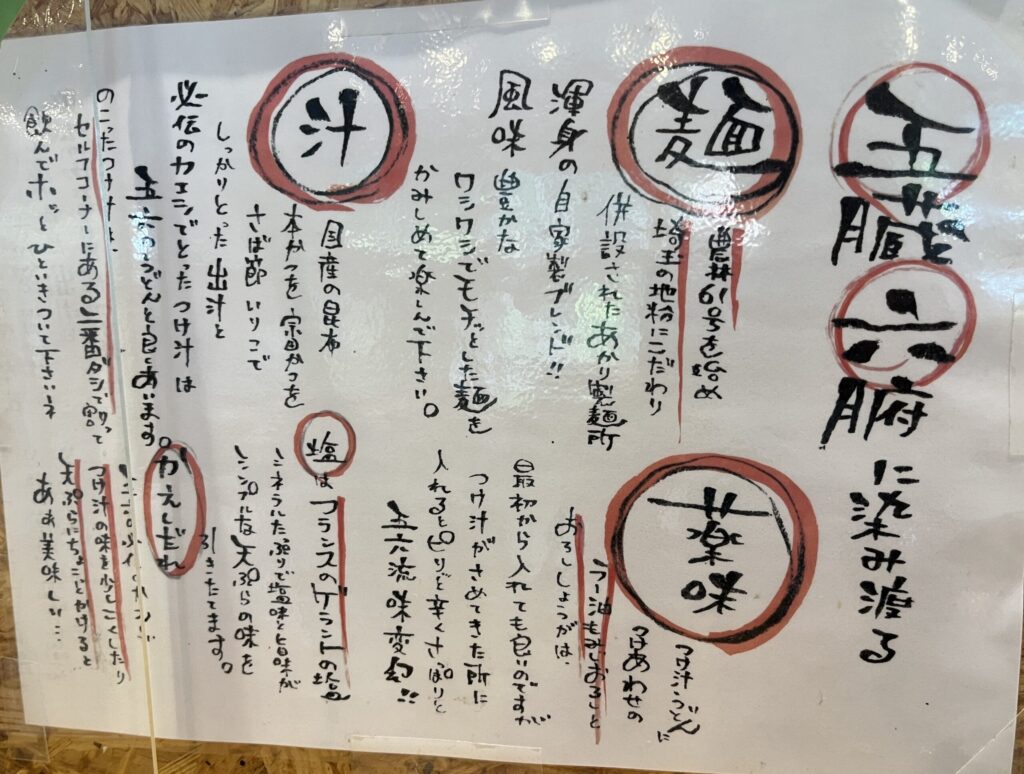 五臓六腑に染み渡る
麺
農林61号を含め
埼玉の地粉にこだわり
併設されたあかり製麺所
渾身の自家製ブレンド!!
風味豊かな
ワシワシでモチッとした麺を
かみしめて楽しんで下さい。
汁
国産の昆布
本かつを宗田かつを
さば節いりこで
しっかりとった出汁と
必伝のカエシでとったつけ汁は
五六のうどんと良くあいます。
のこったつけ汁は、
セルフコーナーにある一番ダシで割って
飲んでホッとひといきついて下さいネ
薬味
つけ汁うどんに
つけあわせの
ラー油もみじおろしと
おろししょうがは、
最初から入れても良いのですが
つけ汁がさめてきた所に
入れるとピリりと辛くさっぱりと
五六流味変幻!!
塩はフランスのゲランドの塩
ミネラルたっぷりで塩味と旨味が
シンプルな天ぷらの味を
引きたてます。
かえしだれ
つけ汁の味を少しこくしたり
天ぷらにちょこっとかけると
あぁ美味しい…